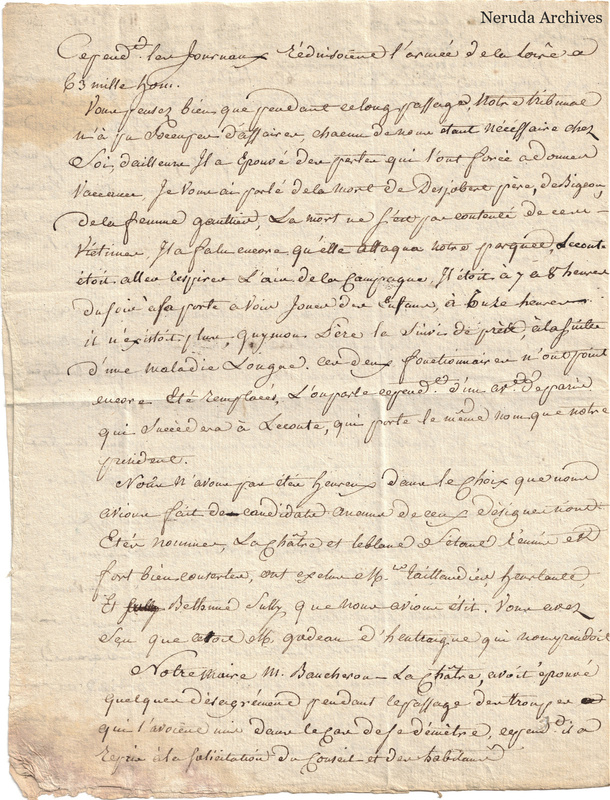 Neruda Archives
Cepend.t les Journaux réduisoient l'armée de la Loire a
63 mille hom.
Vous pensez bien que pendant ce long passage, notre tribunal
n'a pu s'occuper d'affaires, chacun de nous étant nécéssaire chez
Soi, d'ailleurs Il a Epouvé des pertes qui l'ont forcé a donner
Vacances, Je vous ai parlé de la mort de Desjobert père, de Bigeon,
de la femme gauthier, La mort ne s'est pas contenté de ces
Victimes, Il a falu encore qu'elle attaqua notre parquet, Lecomte
étoit aller respirer L'air de la Campagne, Il étoit a 7 a 8 heures
du soir a sa porte a Voir Jouer des Enfans, à Onze heures
il n'existoit plus, Père la suivi de près, à la suite
d'une maladie Longue. ces deux fonctionnaires n'ont point
encore Eté remplacés, L'on parle cepend.t d'un av.t de paris
qui succèdera à Lecomte, qui porte le même nom que notre
président.
Nous n'avons pas étés heureux dans le Choix que nous
avions fait de candidats aucuns de ceux désignés n'ont
Etés nommés, La Châtre et leblanc réunis et
fort bien concertés, ont exclus M.rs taillandier, heurtault,
Et Bethune Sully que nous avions élit. Vous avez
Sçu que c'etoit M. godeau d'hentraigue qui nous présidoit
Notre maire M. Baucheron La Châtre, avoit épouvé
quelques désagrément pendant le passage des troupes
qui l'avoient mis dans le Cas de se démetre, cepend.t il a
repris à la solicitation du Conseil et des habitans